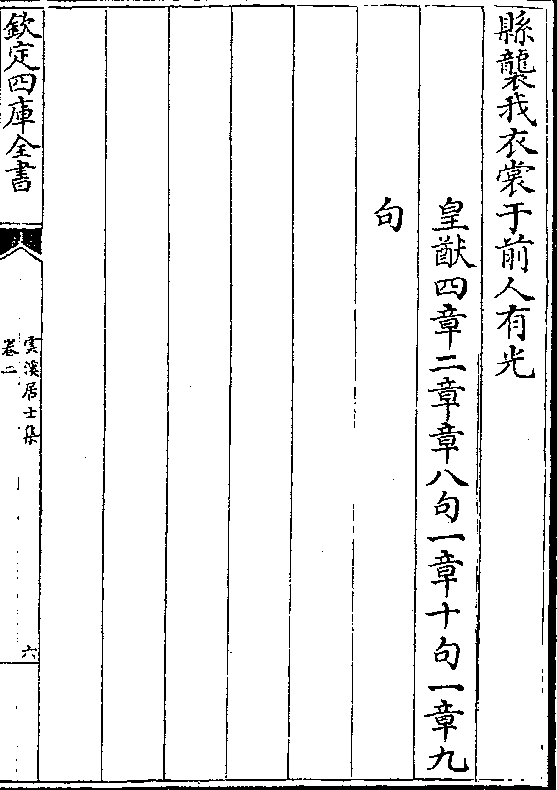 縣襲我衣裳于前人有光
皇猷四章二章章八句一章十句一章九
句
欽定四庫全書
雲溪居士集
卷二
六